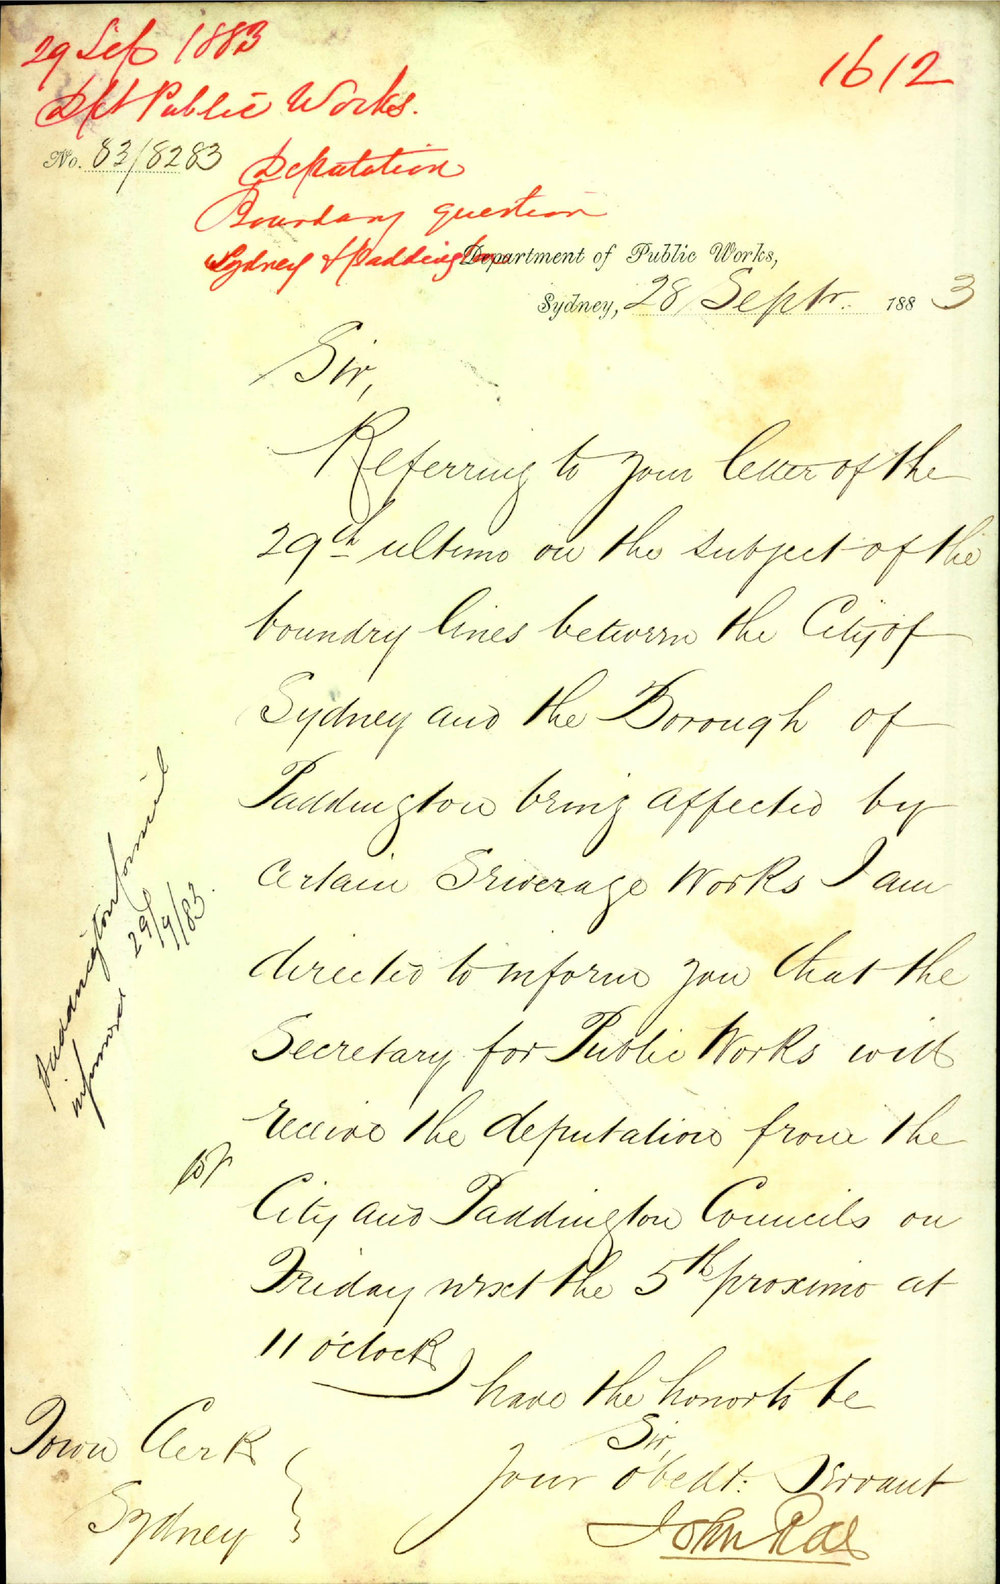 29 Sep 1883
1612
Dpt Public Works.
No. 83/8283
Deputation
Boundary question
Sydney & Paddington
Department of Public Works,
Sydney, 28 Septr. 1883
Sir,
Referring to your letter of the
29th ultimo on the subject of the
boundry lines between the City of
Sydney and the Borough of
Paddington being affected by
certain Sewerage Works I am
directed to inform you that the
Secretary for Public Works will
receive the deputation from the
City and Paddington Councils on
Friday next the 5th proximo at
11 o'clock
I have the honor to be
Sir,
Your obedt: Servant
John Rae
Town Clerk
Sydney
Paddington Council
informed 29/9/83.